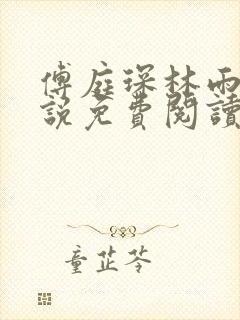 傅庭琛林雨
說免費閱讀
童芷苓